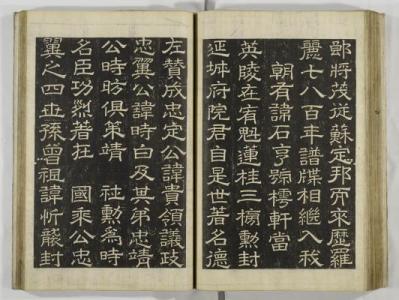 郎將茂從蘇定邦而來歷羅
麗七八百年譜牒相繼入我
朝有諱石亨號樗軒當
英陵在宥魁蓮桂三榜勳封
延城府院君自是世著名德
左贊成忠定公諱貴領議政
忠翼公諱時白及其弟忠靖
公時昉俱策靖 社勳爲時
名臣功烈著在 國乘公忠
翼之四世孫曾祖諱忻襲封